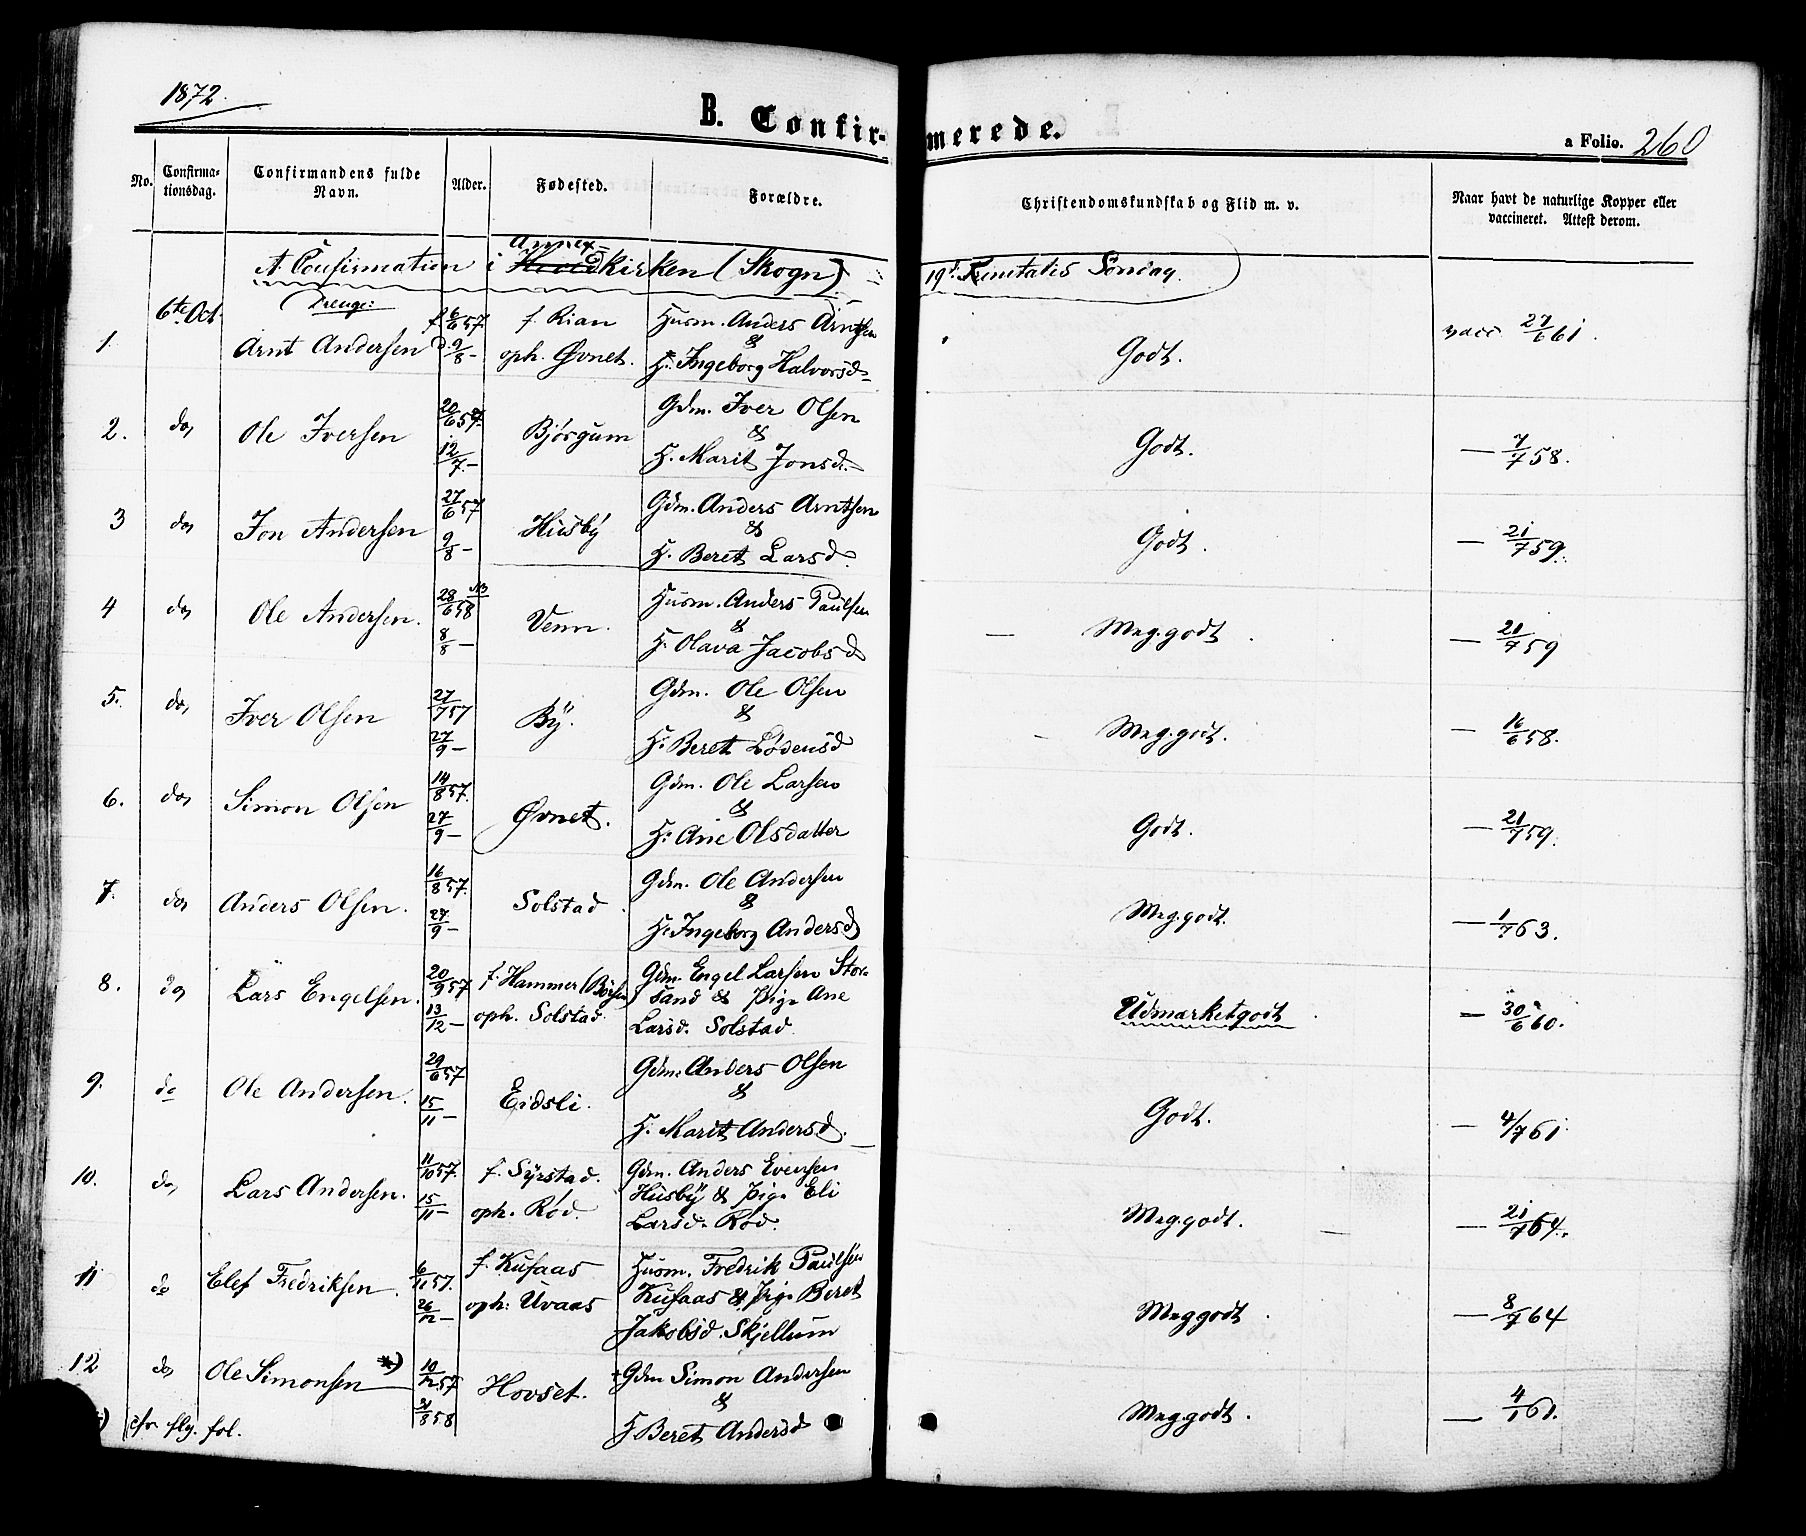 1872.
B. Confir-merede.
a Folio. 260
No.
Confirma-tionsdag.
Confirmandens fulde Navn.
Alder.
Fødested.
Forældre.
Christendomskundskab og Flid m. v.
Naar havt de naturlige Kopper eller vaccineret. Attest derom.
Annex-
A. Confirmation i Hovedkirken (Skogn) 19d. Trinitatis Søndag.
Drenge:
1. 6te Oct. Arnt Andersen f. 6/6 57 d. 9/8 - f. Rian oph. Øvnet. Husm. Anders Arntsen & H. Ingeborg Halvorsd. Godt. vacc. 27/6 61.
2. do, Ole Iversen 20/6 57. 12/7 - Bjørgum Gdm. Iver Olsen & H. Marit Jonsd. Godt. — 7/7 58.
3 do, Jon Andersen 27/6 57 9/8 - Husby Gdm. Anders Arntsen & H. Beret Larsd. Godt. — 21/7 59.
4 do, Ole Andersen. 28/6 58 8/8 - Venn. Husm. Anders Paulsen & H. Olava Jacobsd Meg. godt. — 21/7 59
5. do, Iver Olsen 27/7 57 27/9 - By. Gdm. Ole Olsen & H. Beret Lødensd Meg. godt. — 16/6 58.
6. do, Simon Olsen 14/8 57. 27/9 - Øvnet. Gdm. Ole Larsen & H. Ane Olsdatter Godt. — 21/7 59.
7. do, Anders Olsen. 16/8 57. 27/9 - Solstad. Gdm. Ole Andersen & H. Ingeborg Andersd Meg. godt. — 1/7 63.
8. do, Lars Engelsen. 20/9 57 13/12 - f. Hammer (Børsen) oph. Solstad. Gdm. Engel Larsen Stor-sand & Pige Ane Larsd. Solstad Udmærket godt — 30/6 60.
9. do Ole Andersen. 29/6 57 15/11 - Eidsli. Gdm. Anders Olsen & H. Marit Andersd. Godt. — 4/7 61
10. do, Lars Andersen. 11/10 57. 15/11 - f. Syrstad. oph. Rød. Gdm. Anders Evensen Husby & Pige Eli Larsd. Rød. Meg. godt. — 21/7 64.
11 do Elef Fredriksen. 6/11 57. 26/12 - f. Kufaas oph: Uvaas Husm. Fredrik Paulsen Kufaas & Pige Beret Jakobsd. Skjellum Meg godt. — 8/7 64
12 do, Ole Simonsen *) 10/12 57 21/8 58 Hovset. +Gdm Simon Andersen & H Beret Andersd Meg. godt. — 4/1 61.
*) cfr. flg. fol.